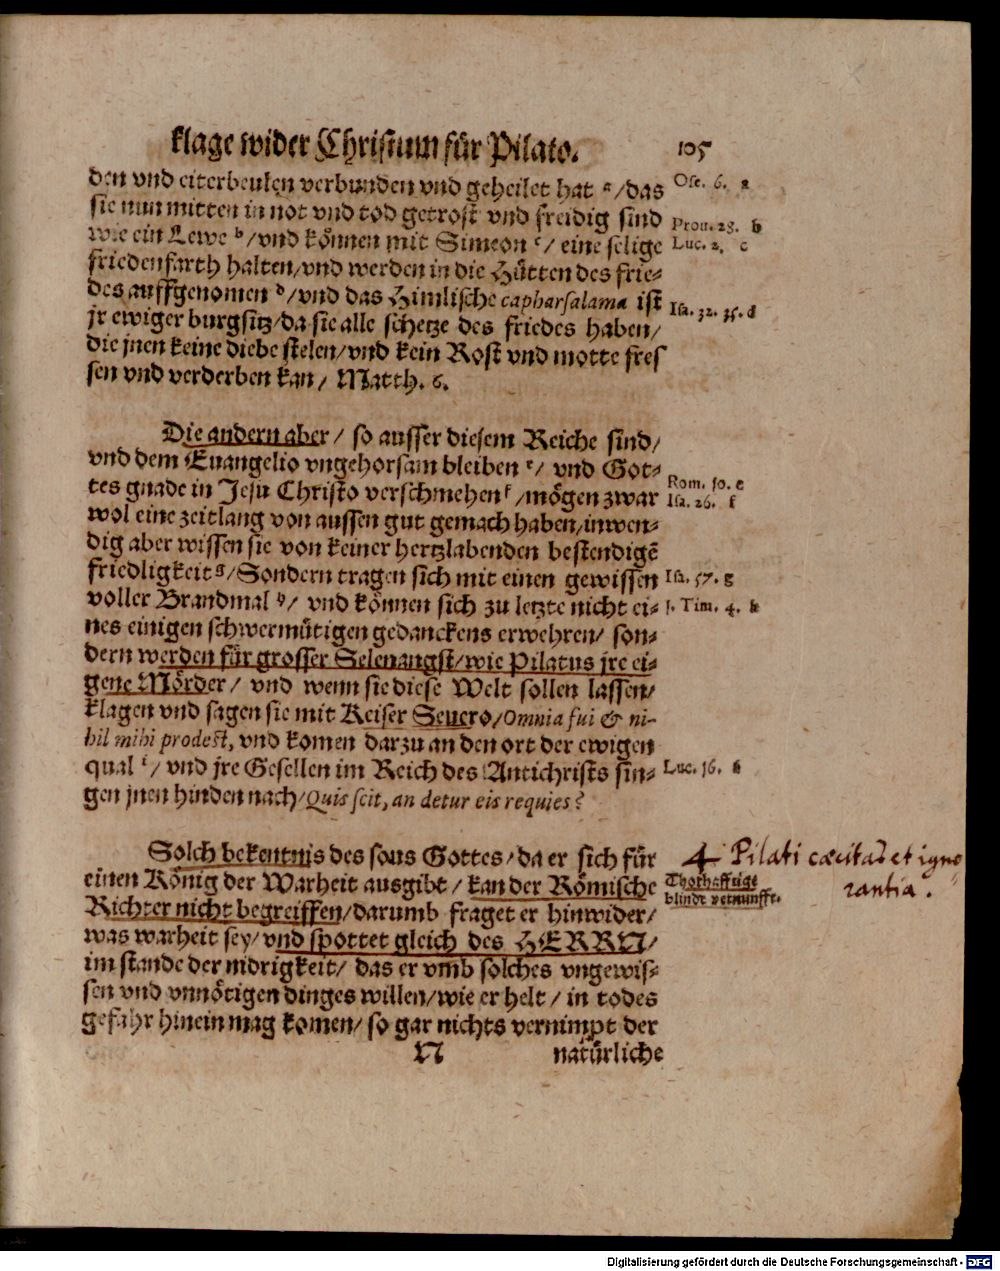 klage wider Christum für Pilato. 105
den vnd eiterbeulen verbunden vnd geheilet hat ª/das
Ose. 6. a
sie nun mitten in not vnd tod getrost vnd freidig sind
wie ein Lewe ᵇ/vnd können mit Simeon ᶜ/ eine selige
Prou. 28. b
Luc. 2. c
friedenfarth halten/vnd werden in die Hütten des frie-
des auffgenomen ᵈ/vnd das Himlische capharsalama ist
Isa. 32. 35. d
jr ewiger burgsitz/da sie alle schetze des friedes haben/
die jnen keine diebe stelen/vnd kein Rost vnd motte fres
sen vnd verderben kan/ Matth. 6.
Die andern aber/ so ausser diesem Reiche sind/
vnd dem Euangelio vngehorsam bleiben ᵉ/ vnd Got-
tes gnade in Jesu Christo verschmehen ᶠ/mögen zwar
Rom. 10. e
Isa. 26. f
wol eine zeitlang von aussen gut gemach haben/inwen-
dig aber wissen sie von keiner hertzlabenden bestendigē
friedligkeit ᵍ/Sondern tragen sich mit einen gewissen
Isa. 57. g
voller Brandmal ʰ/ vnd können sich zu letzte nicht ei-
1. Tim. 4. h
nes einigen schwermütigen gedanckens erwehren/ son-
dern werden für grosser Selenangst/wie Pilatus jre ei-
gene Mörder/ vnd wenn sie diese Welt sollen lassen/
klagen vnd sagen sie mit Keiser Seuero/Omnia fui & ni-
hil mihi prodest, vnd komen darzu an den ort der ewigen
qual ⁱ/ vnd jre Gesellen im Reich des Antichrists sin-
Luc. 16.
gen jnen hinden nach/Quis scit, an detur eis requies?
Solch bekentnis des sons Gottes/da er sich für
4 Pilati cæcitas et igno-
rantia.
einen König der Warheit ausgibt/ kan der Römische
Richter nicht begreiffen/darumb fraget er hinwider/
Thorhafftige
blinde vernunfft.
was warheit sey/vnd spottet gleich des HERRN/
im stande der nidrigkeit/ das er vmb solches vngewis-
sen vnd vnnötigen dinges willen/wie er helt/ in todes
gefahr hinein mag komen/ so gar nichts vernimpt der
N natürliche
Digitalisierung gefördert durch die Deutsche Forschungsgemeinschaft - DFG